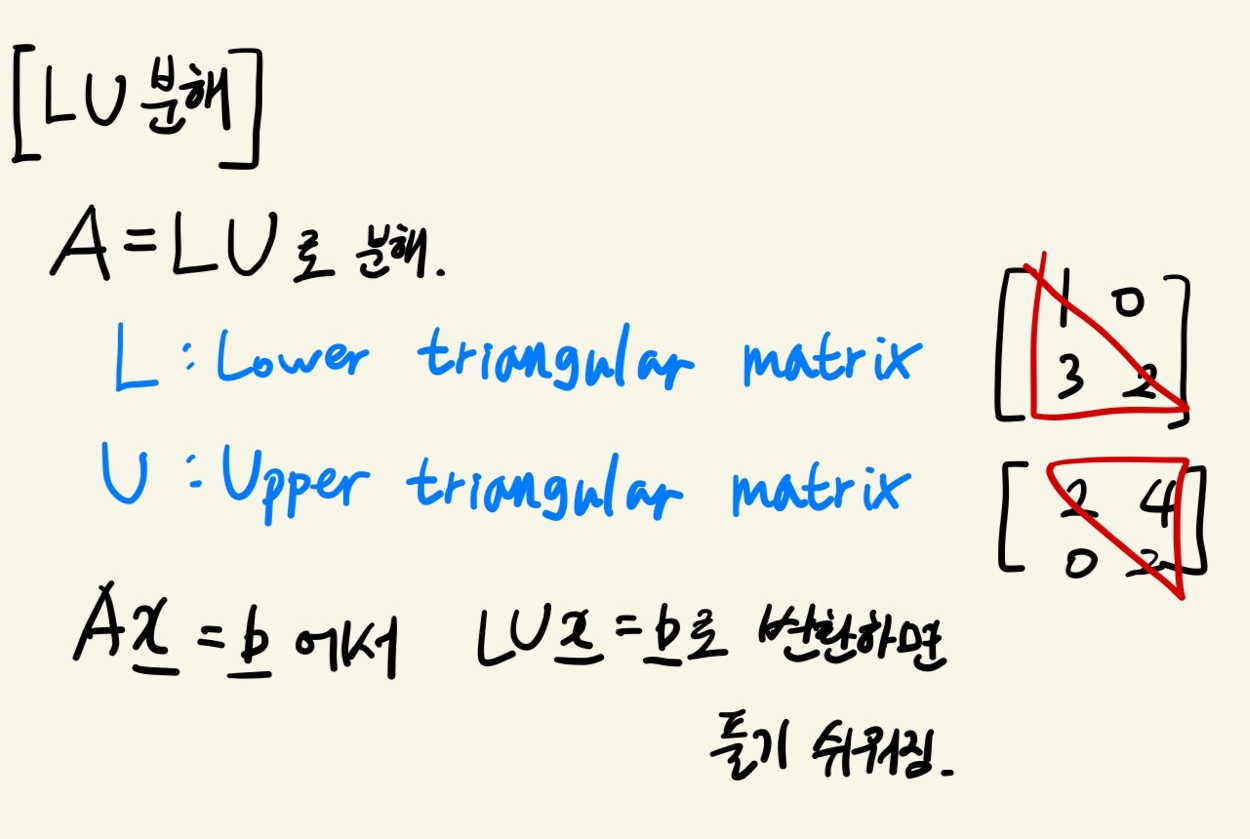 [LU 분해]
A = LU로 분해.
L : Lower triangular matrix
[1 0
3 2]
U : Upper triangular matrix
[2 4
0 2]
Ax = b에서 LUx = b로 변환하면
풀기 쉬워짐.